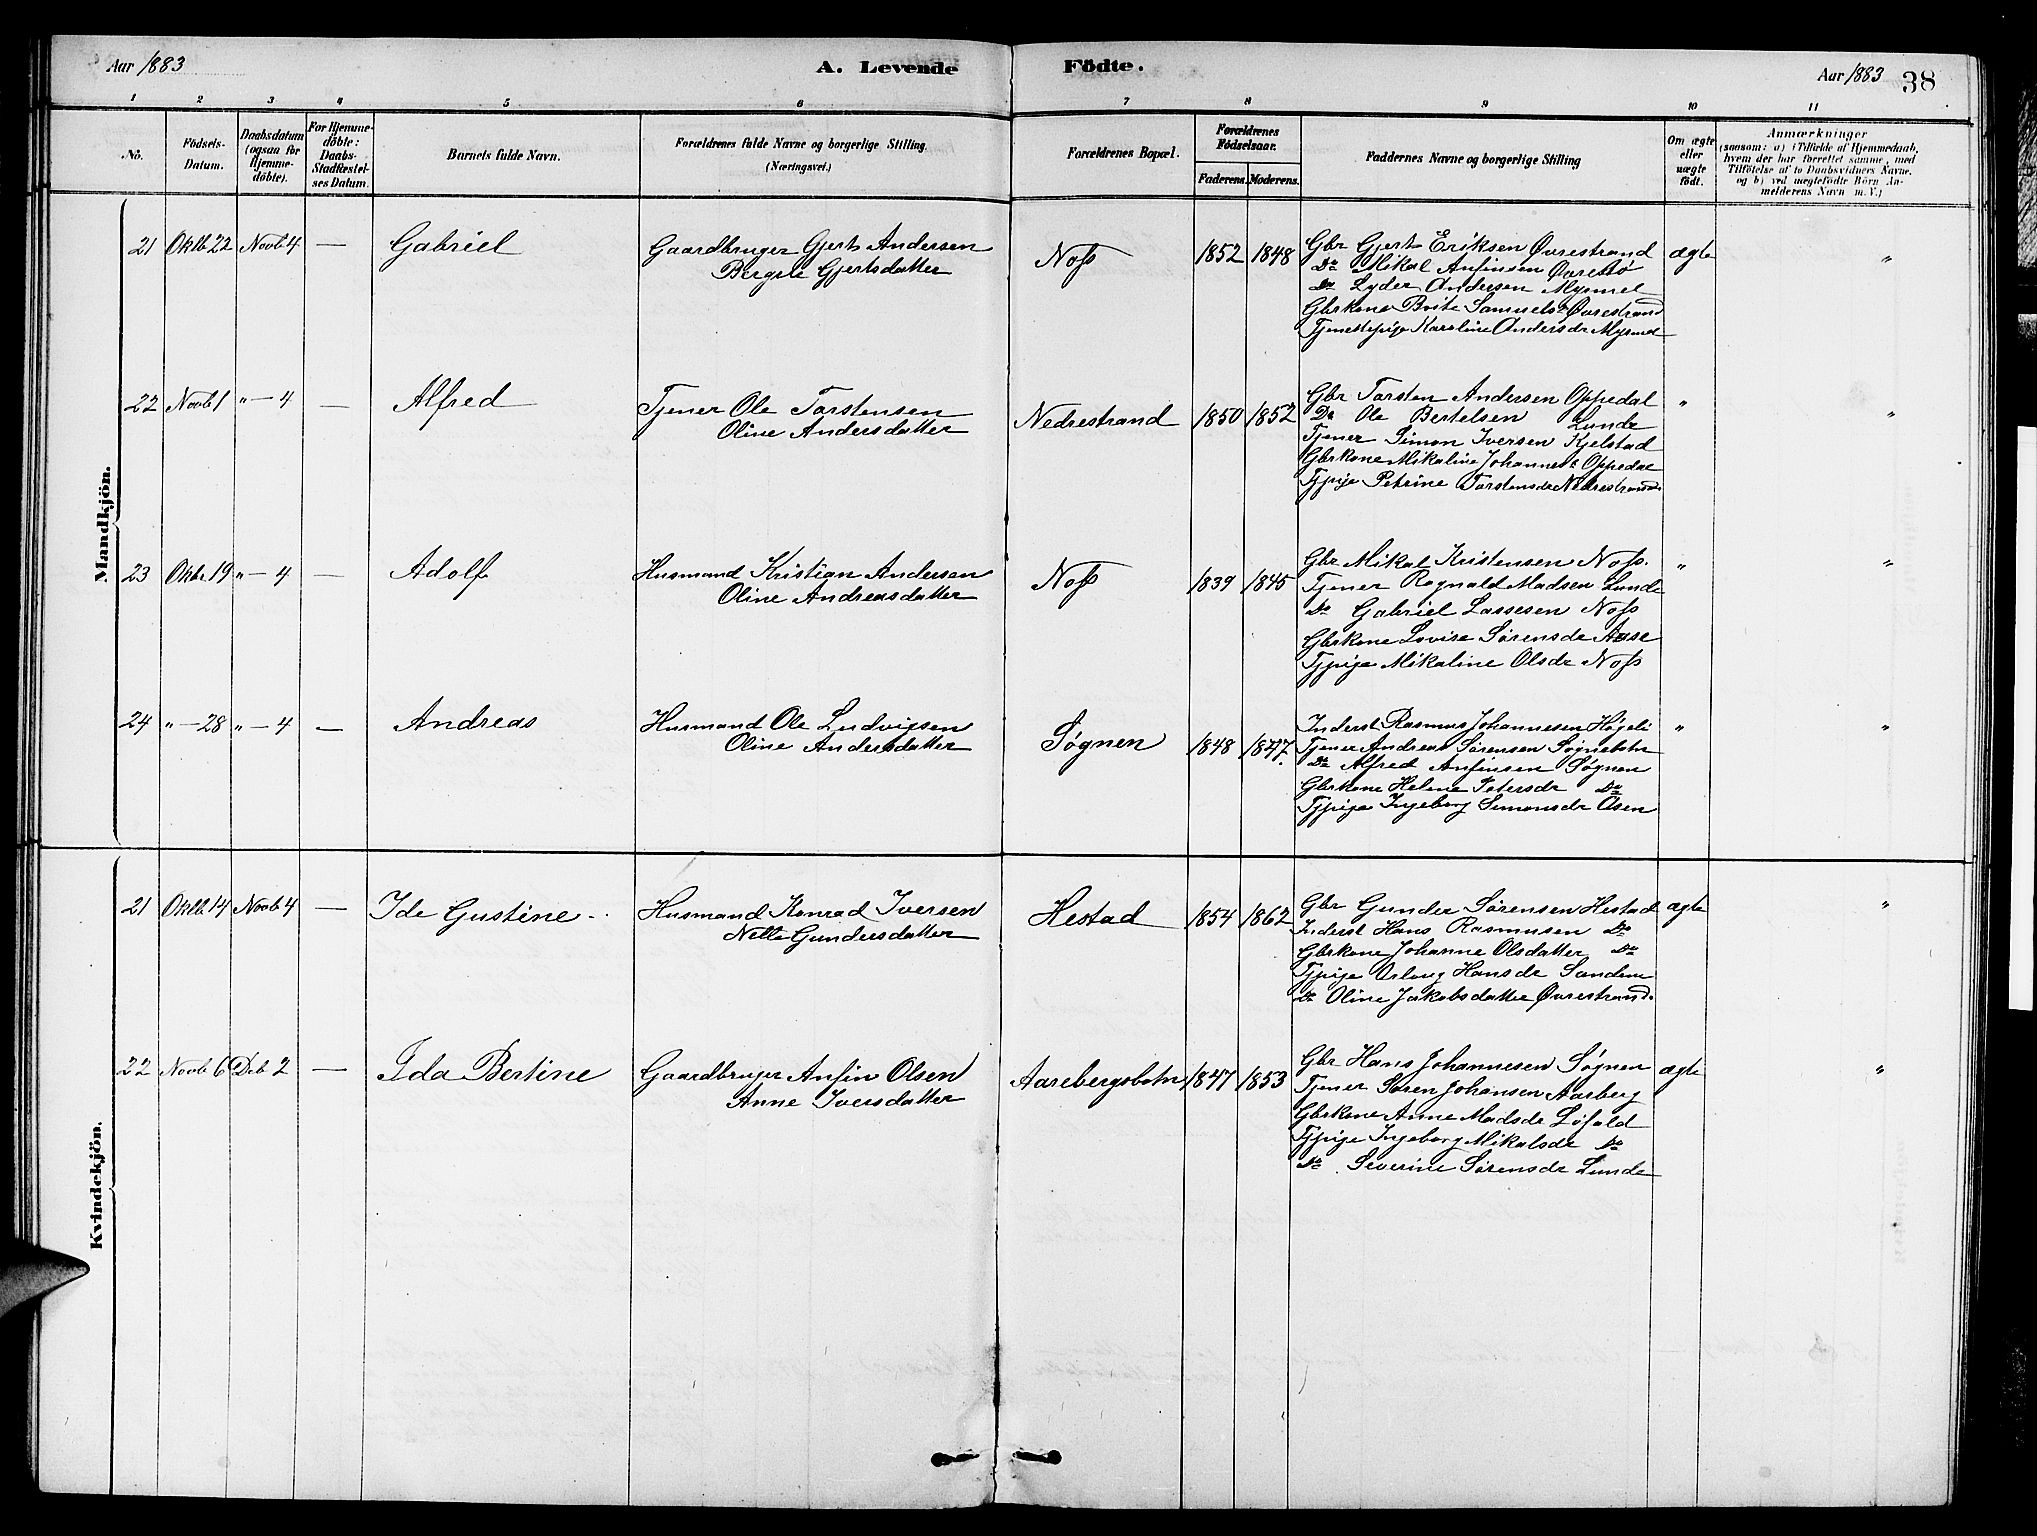 Aar 1883
A. Levende
Födte.
Aar 1883
38
1 2 3 4 5 6 7 8 9 10 11
No.
Födsels-
Datum.
Daabsdatum
(ogsaa for
Hjemme-
döbte).
For Hjemme-
döbte:
Daabs-
Stadfæstel-
ses Datum.
Barnets fulde Navn.
Forældrenes fulde Navne og borgerlige Stilling.
(Næringsvei.)
Forældrenes Bopæl.
Forældrenes
Födselsaar.
Faderens. Moderens.
Faddernes Navne og borgerlige Stilling
Om ægte
eller
uægte
födt.
Anmærkninger
(saasom: a) i Tilfælde af Hjemmedaab,
hvem der har forrettet samme, med
Tilföielse af to Daabsvidners Navne.
og b) ved uægtefödte Börn An-
melderens Navn m. V.)
Mandkjön.
21 Oktb 22 Novb 4 — Gabriel
Gaardbruger Gjert Andersen
Bergete Gjertsdatter
Noss 1852 1848
Gbr Gjert Eriksen Øvrestrand
Do Mikal Anfinsen Øvrebø
Do Lyder Andersen Myrmel
Gbrkone Brite Samuelsdr Øvrestrand
Tjenestepige Karoline Andersdr Myrmel
ægte "
22 Novb 1 " — 4 — Alfred
Tjener Ole Torstensen
Oline Andersdatter
Nedrestrand 1850 1852
Gbr Torsten Andersen Oppedal
Do Ole Bertelsen Lunde
Tjener Simon Iversen Kjelstad
Gbrkone Mikaline Johannesdr Oppedal
Tjpige Petrine Torstensdr Nedrestrand
" "
23 Oktbr 19 " — 4 — Adolf
Husmand Kristian Andersen
Oline Andreasdatter
Noss 1839 1845
Gbr Mikal Kristensen Noss.
Tjener Rognald Madsen Lunde
Do Gabriel Lassesen Noss
Gbrkone Lovise Sørensdr Aase
Tjpige Mikaline Olsdr Noss
" "
24 " — 28 " — 4 — Andreas
Husmand Ole Ludvigsen
Oline Andersdatter
Søgnen 1848 1847.
Inderst Rasmus Johannesen Høgeli
Tjener Andreas Sørensen Søgnebotn
Do Alfred Anfinsen Søgnen
Gbrkone Helene Petersdr Do
Tjpige Ingeborg Simonsdr Osen
" "
Kvindekjön.
21 Oktb 14 Novb 4 — Ide Gustine
Husmand Konrad Iversen
Nette Gundersdatter
Hestad 1854 1862
Gbr Gunder Sørensen Hestad
Inderst Hans Rasmusen Do
Gbrkone Johanne Olsdatter Do
Tjpige Orlaug Hansdr Sandene
Do Oline Jakobsdatter Øvrestrand.
ægte "
22 Novb 6 Deb 2 — Ida Bertine
Gaardbruger Anfin Olsen
Anne Iversdatter
Aarebergsbotn 1847 1853
Gbr Hans Johannesen Søgnen
Tjener Søren Johansen Aarberg
Gbrkone Anne Madsdr Løfald
Tjpige Ingeborg Mikalsdr Do
Do Severine Sørensdr Lunde
ægte "